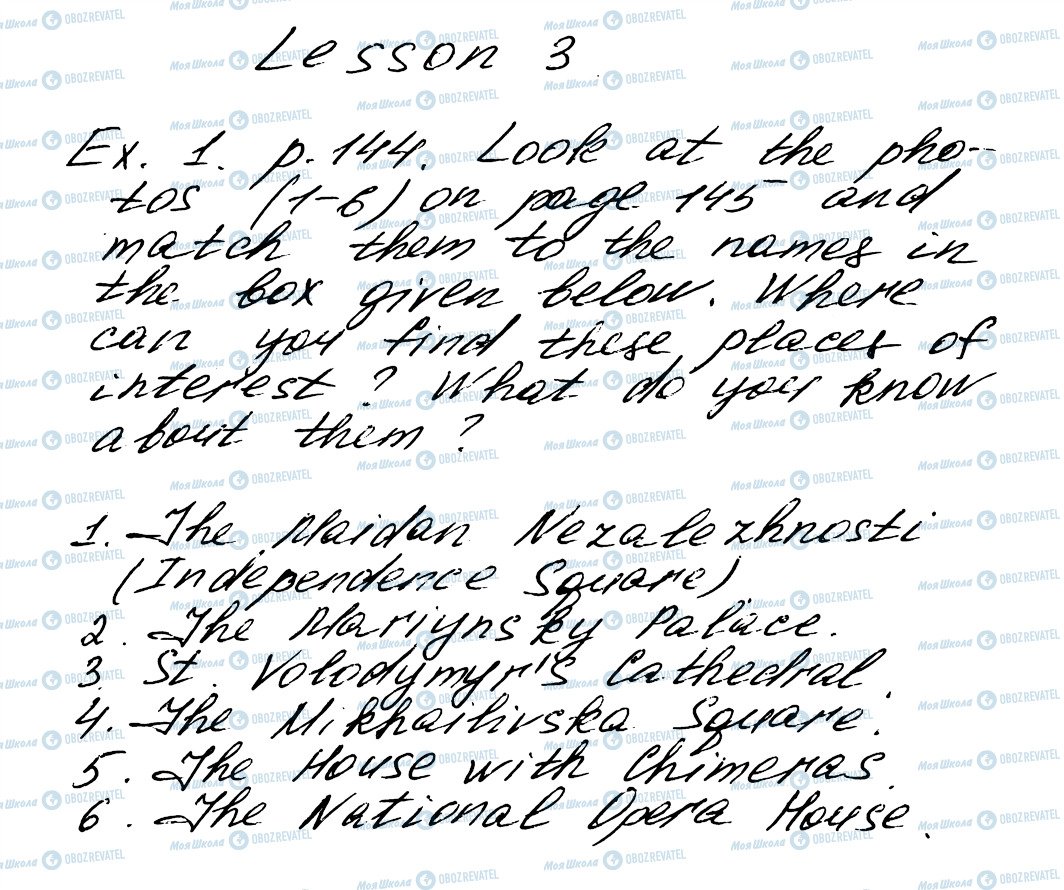 Lesson 3
Ex. 1. p. 144. Look at the pho-
tos (1-6) on page 145 and
match them to the names in
the box given below. Where
can you find these places of
interest? What do you know
about them?
1. The Maidan Nezalezhnosti
(Independence Square)
2. The Mariynsky Palace.
3. St. Volodymyr's Cathedral.
4. The Mikhailivska Square.
5. The House with Chimeras.
6. The National Opera House.